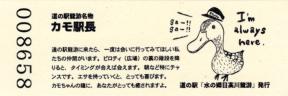 008658
道の駅龍游名物
カモ駅長
ga-!!
ga-!!
I'm
always
here.
道の駅龍游に来たら、一度は会いに行ってみてほしい私た
ちの仲間がいます。ピロティ（広場）の裏の階段を降
りると、タイミングが合えば会えます。朝など特にチャ
ンスです。エサを持っていくと、とっても喜びます。
カモちゃんの瞳に、あなたがとっても癒されますよ。
道の駅「水の郷日高川龍游」発行